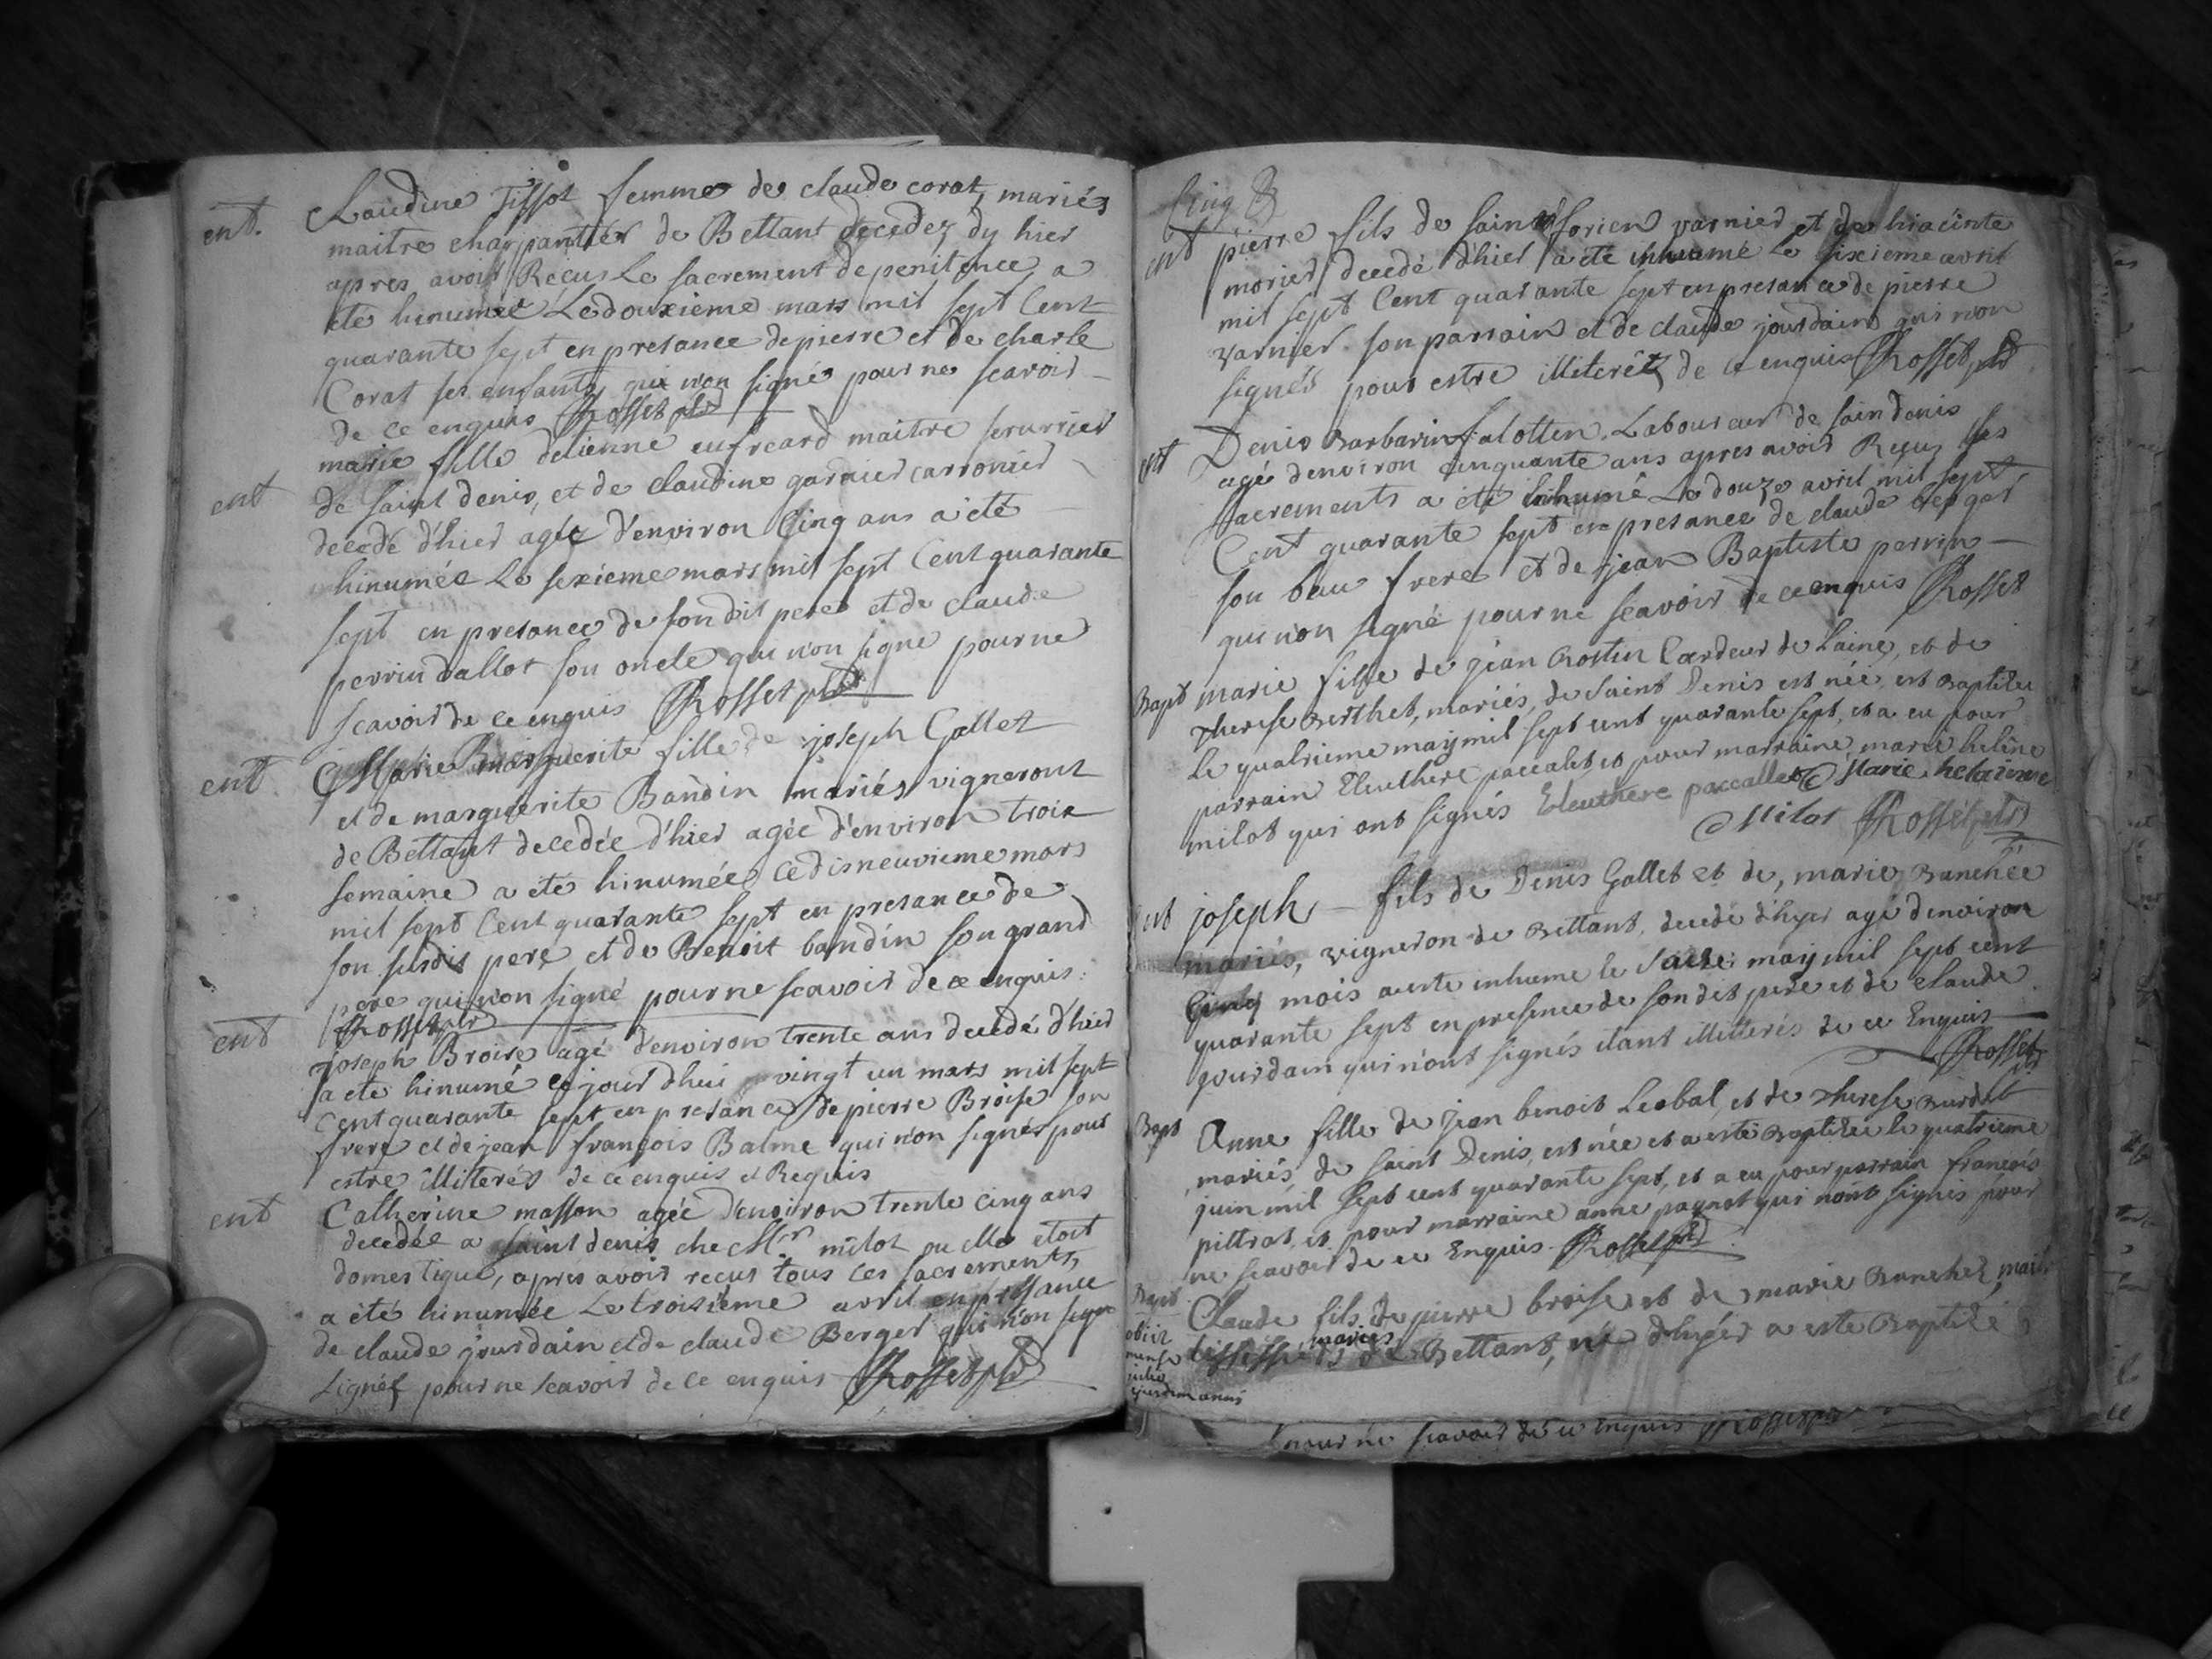 ent. Claudine Tissot femme de claude corat, mariés
maitre charpantier de Bettant decedez dy hier
apres avoir Recus Le sacrement de penitence, a
eté hinumée Le douxieme mars mil sept Cent
quarante sept en presance de pierre et de charle
Corat ses enfants, qui n'on signé pour ne scavoir
de ce enquis Rosset
ent marie fille detienne eufreard maitre serurrier
de saint denis, et de claudine garnier carronier
decede d'hier agée d'environ Cinq ans a eté
hinumée Le sexieme mars mil sept Cent quarante
sept en presance de son dit pere et de claude
perrin vallot son oncle qui n'on signe pour ne
scavoir de ce enquis Rosset
ent. Marie marguerite fille de joseph Gallet
et de marguerite Bandin mariés vigneront
de Bettant decedée d'hier agée d'environ trois
semaine a eté hinumée ce disneuvieme mars
mil sept Cent quarante sept en presance de
son susdit pere et de Benoit bandin son grand
pere qui n'on signé pour ne scavoir de ce enquis
Rosset
ent joseph Broise agé d'environ trente ans decedé d'hier
a eté hinumé ce jour dhui vingt un mars mil sept
Cent quarante sept en presance de pierre Broise son
frere et de jean françois Balme qui n'on signés pour
estre illiterés de ce enquis et Requis
ent Catherine masson agée d'environ trente cinq ans
decedée a saint denis che Mr milot ou elle etoit
domestique, apres avoir recus tous les sacrements,
a eté hinumée Le troisieme avril en presance
de claude jourdain et de claude Berger qui n'on signe
signés pour ne scavoir de ce enquis Rosset
Cinq
ent pierre fils de sainsforien varnier et de hiacinte
morier decedé d'hier a eté inhumé Le sixieme avril
mil sept Cent quarante sept en presance de pierre
varnier son parrain et de claude jourdain qui n'on
signés pour estre illiterêt de ce enquis Rosset
ent Denis Barbarin falotten Laboureur de sain denis
agé denviron cinquante ans apres avoir Reçu ses
sacrements a été inhumé Le douze avril mil sept
Cent quarante sept en presance de claude berger
son beau frere et de jean Baptiste perrin
qui n'on signé pour ne scavoir de ce enquis Rosset
Bapt marie fille de jean Rostin Cardeur de Laine, et de
Therese Berthet, mariés, de saint Denis est née est Baptisee
le quatrieme may mil sept cent quarante sept, et a eu pour
parrain Eleuthere paccalet, et pour marraine marie heleine
milot qui ont signés Eleuthere paccallet Marie helaienne
Milot Rosset
ent joseph fils de Denis Gallet et de, marie Banchée
mariés, vigneron de Bettant, decede d'hyer agé denviron
Cinq mois a esté inhume le saize may mil sept cent
quarante sept en presence de son dit pere et de claude
jourdain qui n'ont signés etant illitterés de ce Enquis
Rosset
Bapt Anne fille de jean benoit Leobal, et de Therese Burdet
mariés, de saint Denis, est née et a esté Baptisée le quatrieme
juin mil sept cent quarante sept, et a eu pour parrain françois
pittrat, et pour marraine anne pagnot qui n'ont signés pour
ne scavoir de ce Enquis. Rosset
Bapt Claude fils de pierre broise et de marie Banchet, mait
mariés
de Bettant, né d'hyer a esté Baptisé
obiit
mense
julio
ejusdem anni
pour ne scavoir de ce enquis Rosset